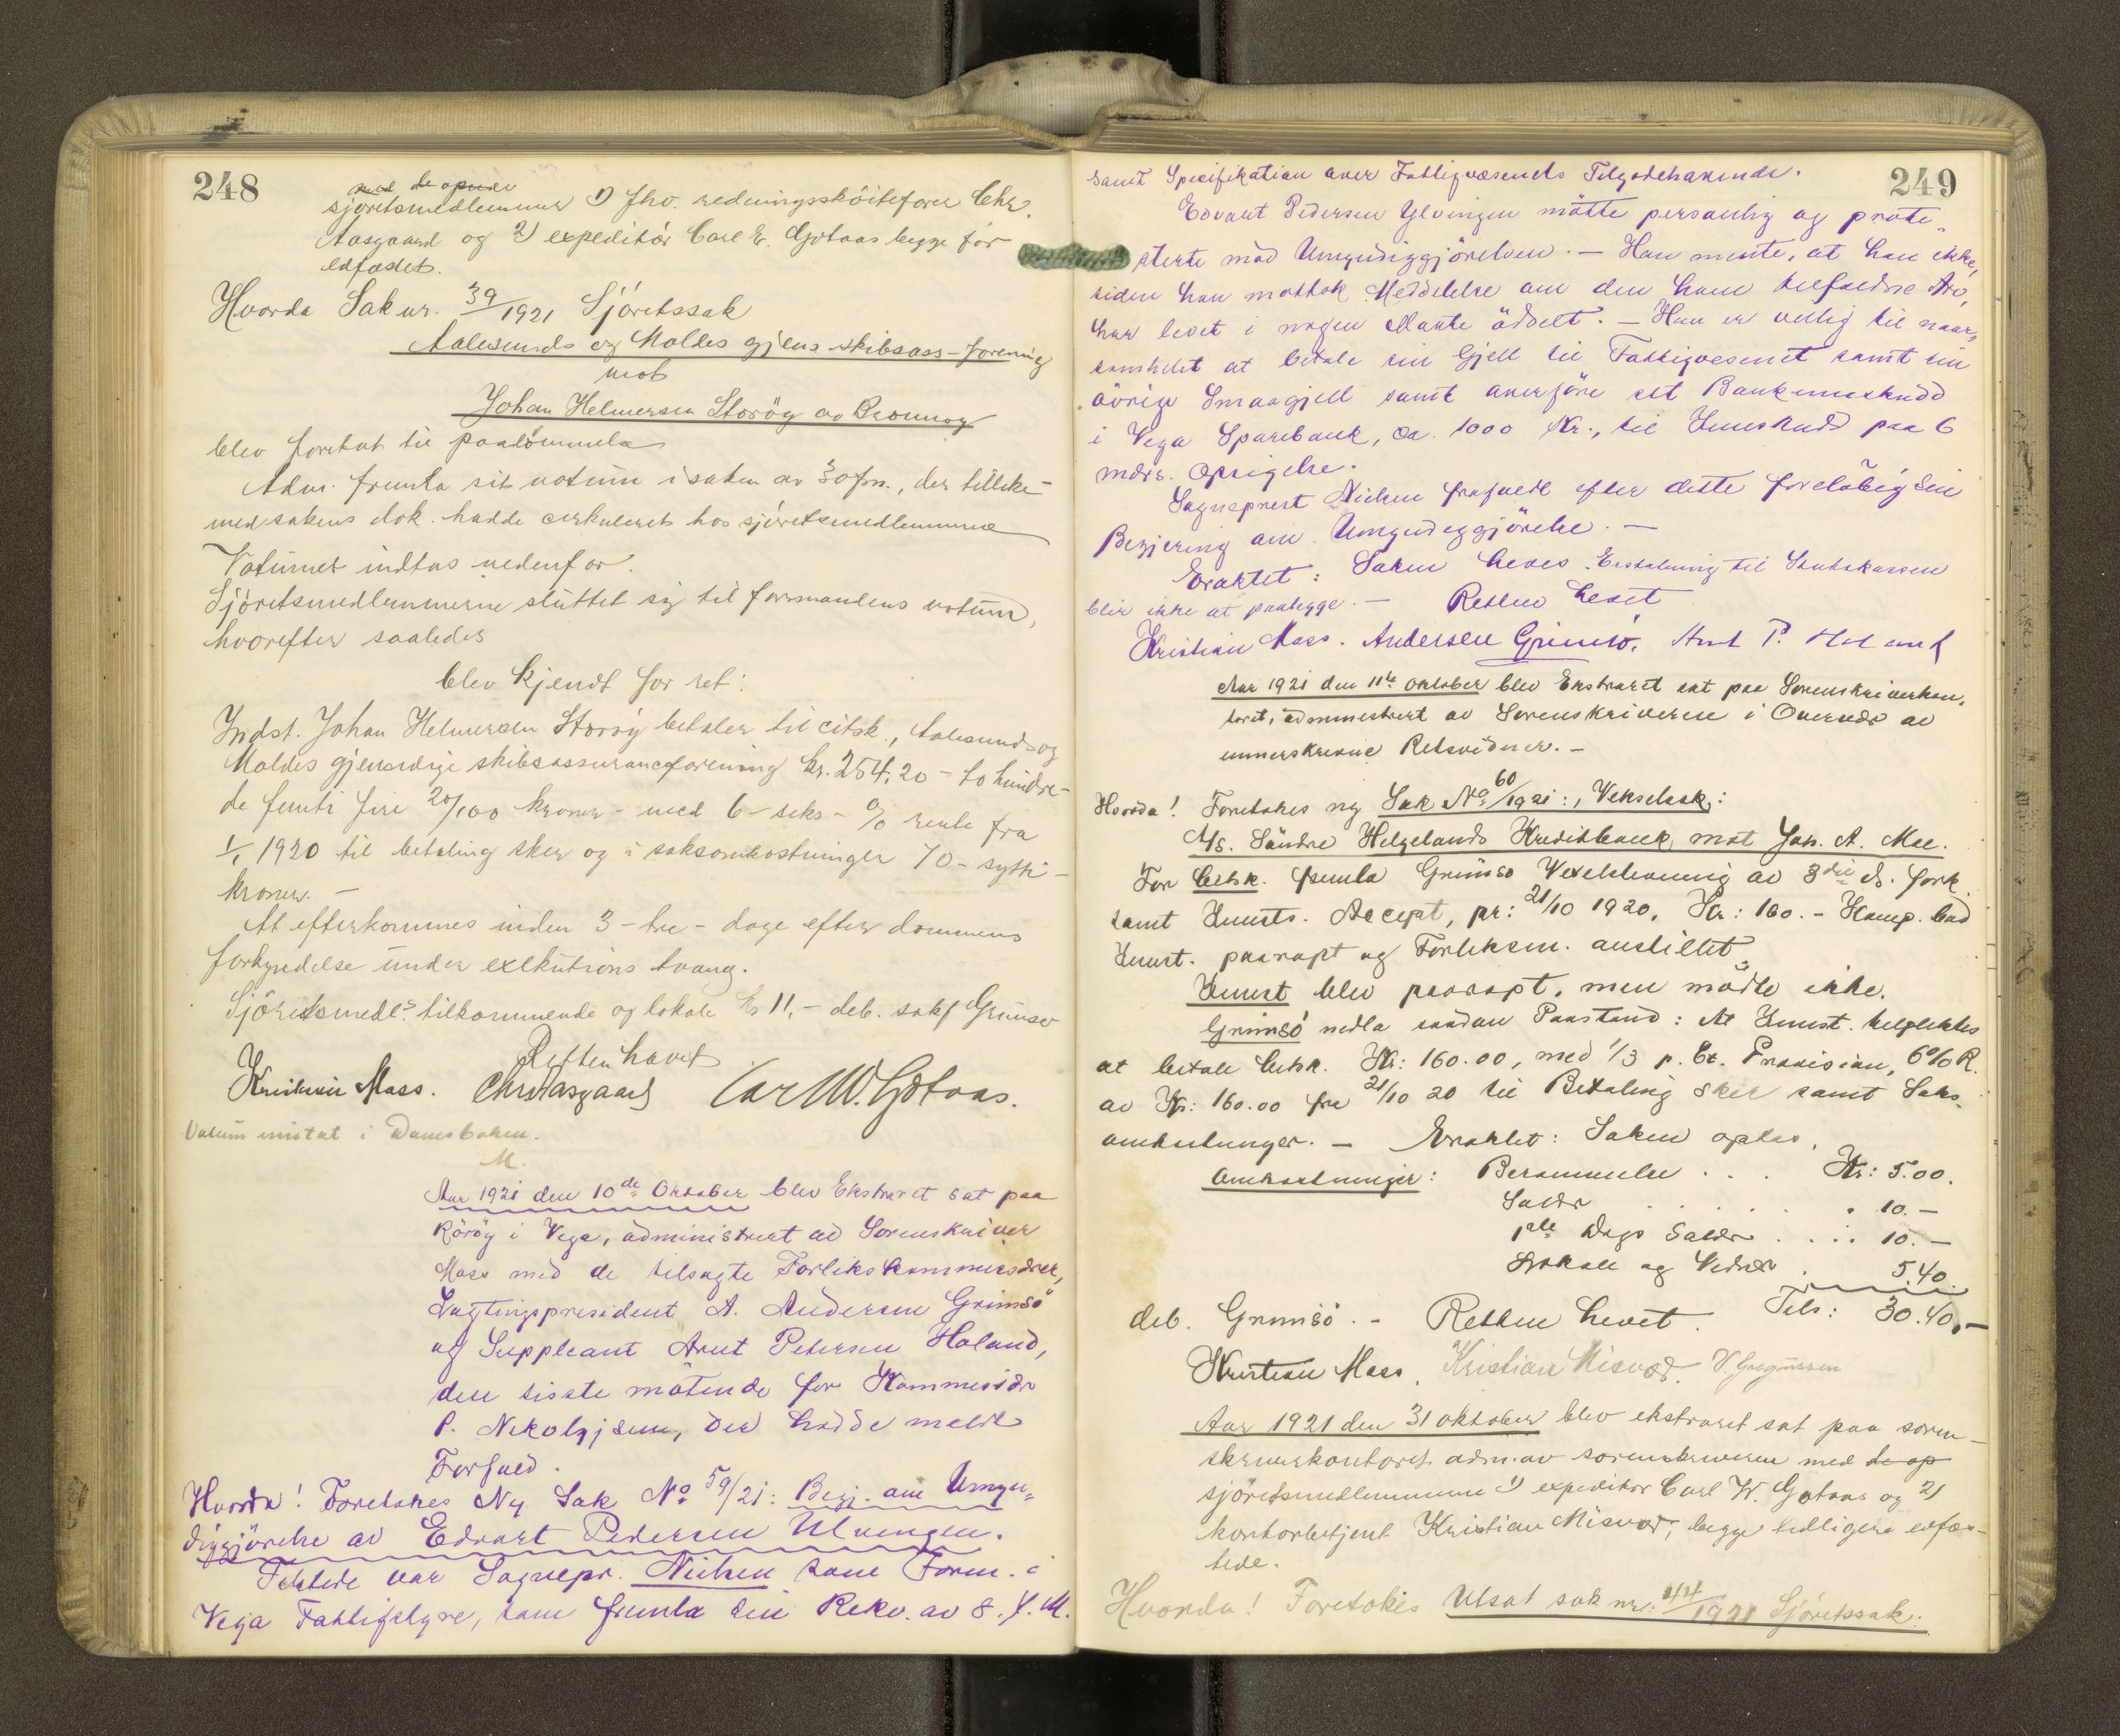 248
med de opnævn
sjøretsmedlemmer 1) fhv. redningsskøitefører Chr.
Aasgaard og 2) expeditør Carl W. Götaas begge før
edfæstet.
Hvorda Sak nr. 39/1921 Sjöretssak
Aalesunds og Moldes gjens. skibsass-forening
mot
Johan Helmersen Storöy av Brønnøy
blev foretat til paadömmelse
Adm. fremla sit votum i saken av 30 f.m., der tillike-
med sakens dok. hadde cirkuleret hos sjöretsmedlemmene
Votumet indtas nedenfor.
Sjöretsmedlemmerne sluttet sig til formandens votum,
hvorefter saaledes
blev kjendt for ret:
Indst. Johan Helmersen Storöy betaler til citsk., Aalesunds og
Moldes gjensidige skibsassuranceforening kr. 254,20 - to hundre-
de femti fire 20/100 kroner - med 6 - seks - % rente fra
1/1 1920 til betaling sker og i saksomkostninger 70 - sytti -
kroner. -
At efterkommes inden 3 - tre - dage efter dommens
forkyndelse under exekutions tvang.
Sjöretsmedl.s tilkommende og lokale kr 11,- deb. sakf Grimsö
Retten hævet
Kristian Mass. Chr Aasgaard Carl W. Götaas.
Votum inntat i Domsboken.
M.
Aar 1921 den 10de Oktober blev Ekstraret sat paa
Rörøy i Vega, administrert av Sorenskriver
Mass med de tilsagte Forlikskommissærer,
Lagtingspresident A. Andersen Grimsö
og Suppleant Arnt Petersen Holand,
den sisste mötende for Kommissær
P. Nikolajsen, der hadde meldt
Forfald.
Hvorda! Foretokes Ny Sak No 59/21: Begj. om Umyn-
diggjörelse av Edvart Pedersen Ulvingen.
Tilstede var Sognepr. Nielsen som Form. i
Vega Fattigstyre, som fremla sin Rekv. av 8. f. M.
249
samt Specifikation over Fattigvæsenets Tilgodehavende.
Edvart Pedersen Ylvingen mötte personlig og prote-
sterte mod Umyndiggjörelsen. - Han mente, at han ikke,
siden han mottok Meddelelse om den ham tilfaldne Arv,
har levet i nogen Maate ödselt. - Han er villig til naar-
somhelst at betale sin Gjeld til Fattigvæsenet samt sin
övrige Smaagjeld samt overföre sit Bankinnskudd
i Vega Sparebank, ca. 1000 Kr., til Innskudd paa 6
mdrs. Opsigelse.
Sogneprest Nielsen frafaldt efter dette foreløbig sin
Begjering om Umyndiggjörelse. -
Eraktet: Saken heves. Erstatning til Statskassen
blir ikke at paalegge. - Retten hevet
Kristian Mass. Andersen Grimsö. Arnt P. Holand
Aar 1921 den 11te Oktober blev Ekstraret sat paa Sorenskriverkon-
toret, administrert av Sorenskriveren i Overvær av
unnerskrevne Retsvidner. -
Hvorda! Foretokes ny Sak No 60/1921:, Vekselsak:
A/S. Söndre Helgelands Kreditbank mot Joh. A. Moe.
For Citsk. fremla Grimsö Vexelstevning av 3die ds. fork.
samt Innsts. Accept, pr: 21/10 1920, Kr: 160. - Komp. bad
Innst. paaropt og Forliksm. anstillet.
Innst blev paaropt, men mödte ikke.
Grimsö nedla saadan Paastand: At Innst. tilpliktes
at betale Citsk. Kr: 160.00, med 1/3 p. Ct. Provision, 6% R.
av Kr: 160.00 fra 21/10 20 til Betaling sker samt Saks-
omkostninger. - Eraktet: Saken optas.
Omkostninger: Berammelse . . . Kr: 5.00.
Salær . . . . . . 10.-
1ste Dags Salær . . . . 10.-
Lokale og Vidner . 5.40.
deb. Grimsö. - Retten hevet. Tils: 30.40,-
Kristian Mass. Kristian Misvær. V. Gregussen
Aar 1921 den 31 oktober blev ekstraret sat paa soren-
skriverkontoret adm. av sorenskriveren med de op
sjöretsmedlemmene 1) expeditör Carl W. Gotaas og 2)
kontorbetjent Kristian Misvær, begge tidligere edfæs-
tede.
Hvorda! Foretokes Utsat sak nr. 44/1921 Sjöretssak.